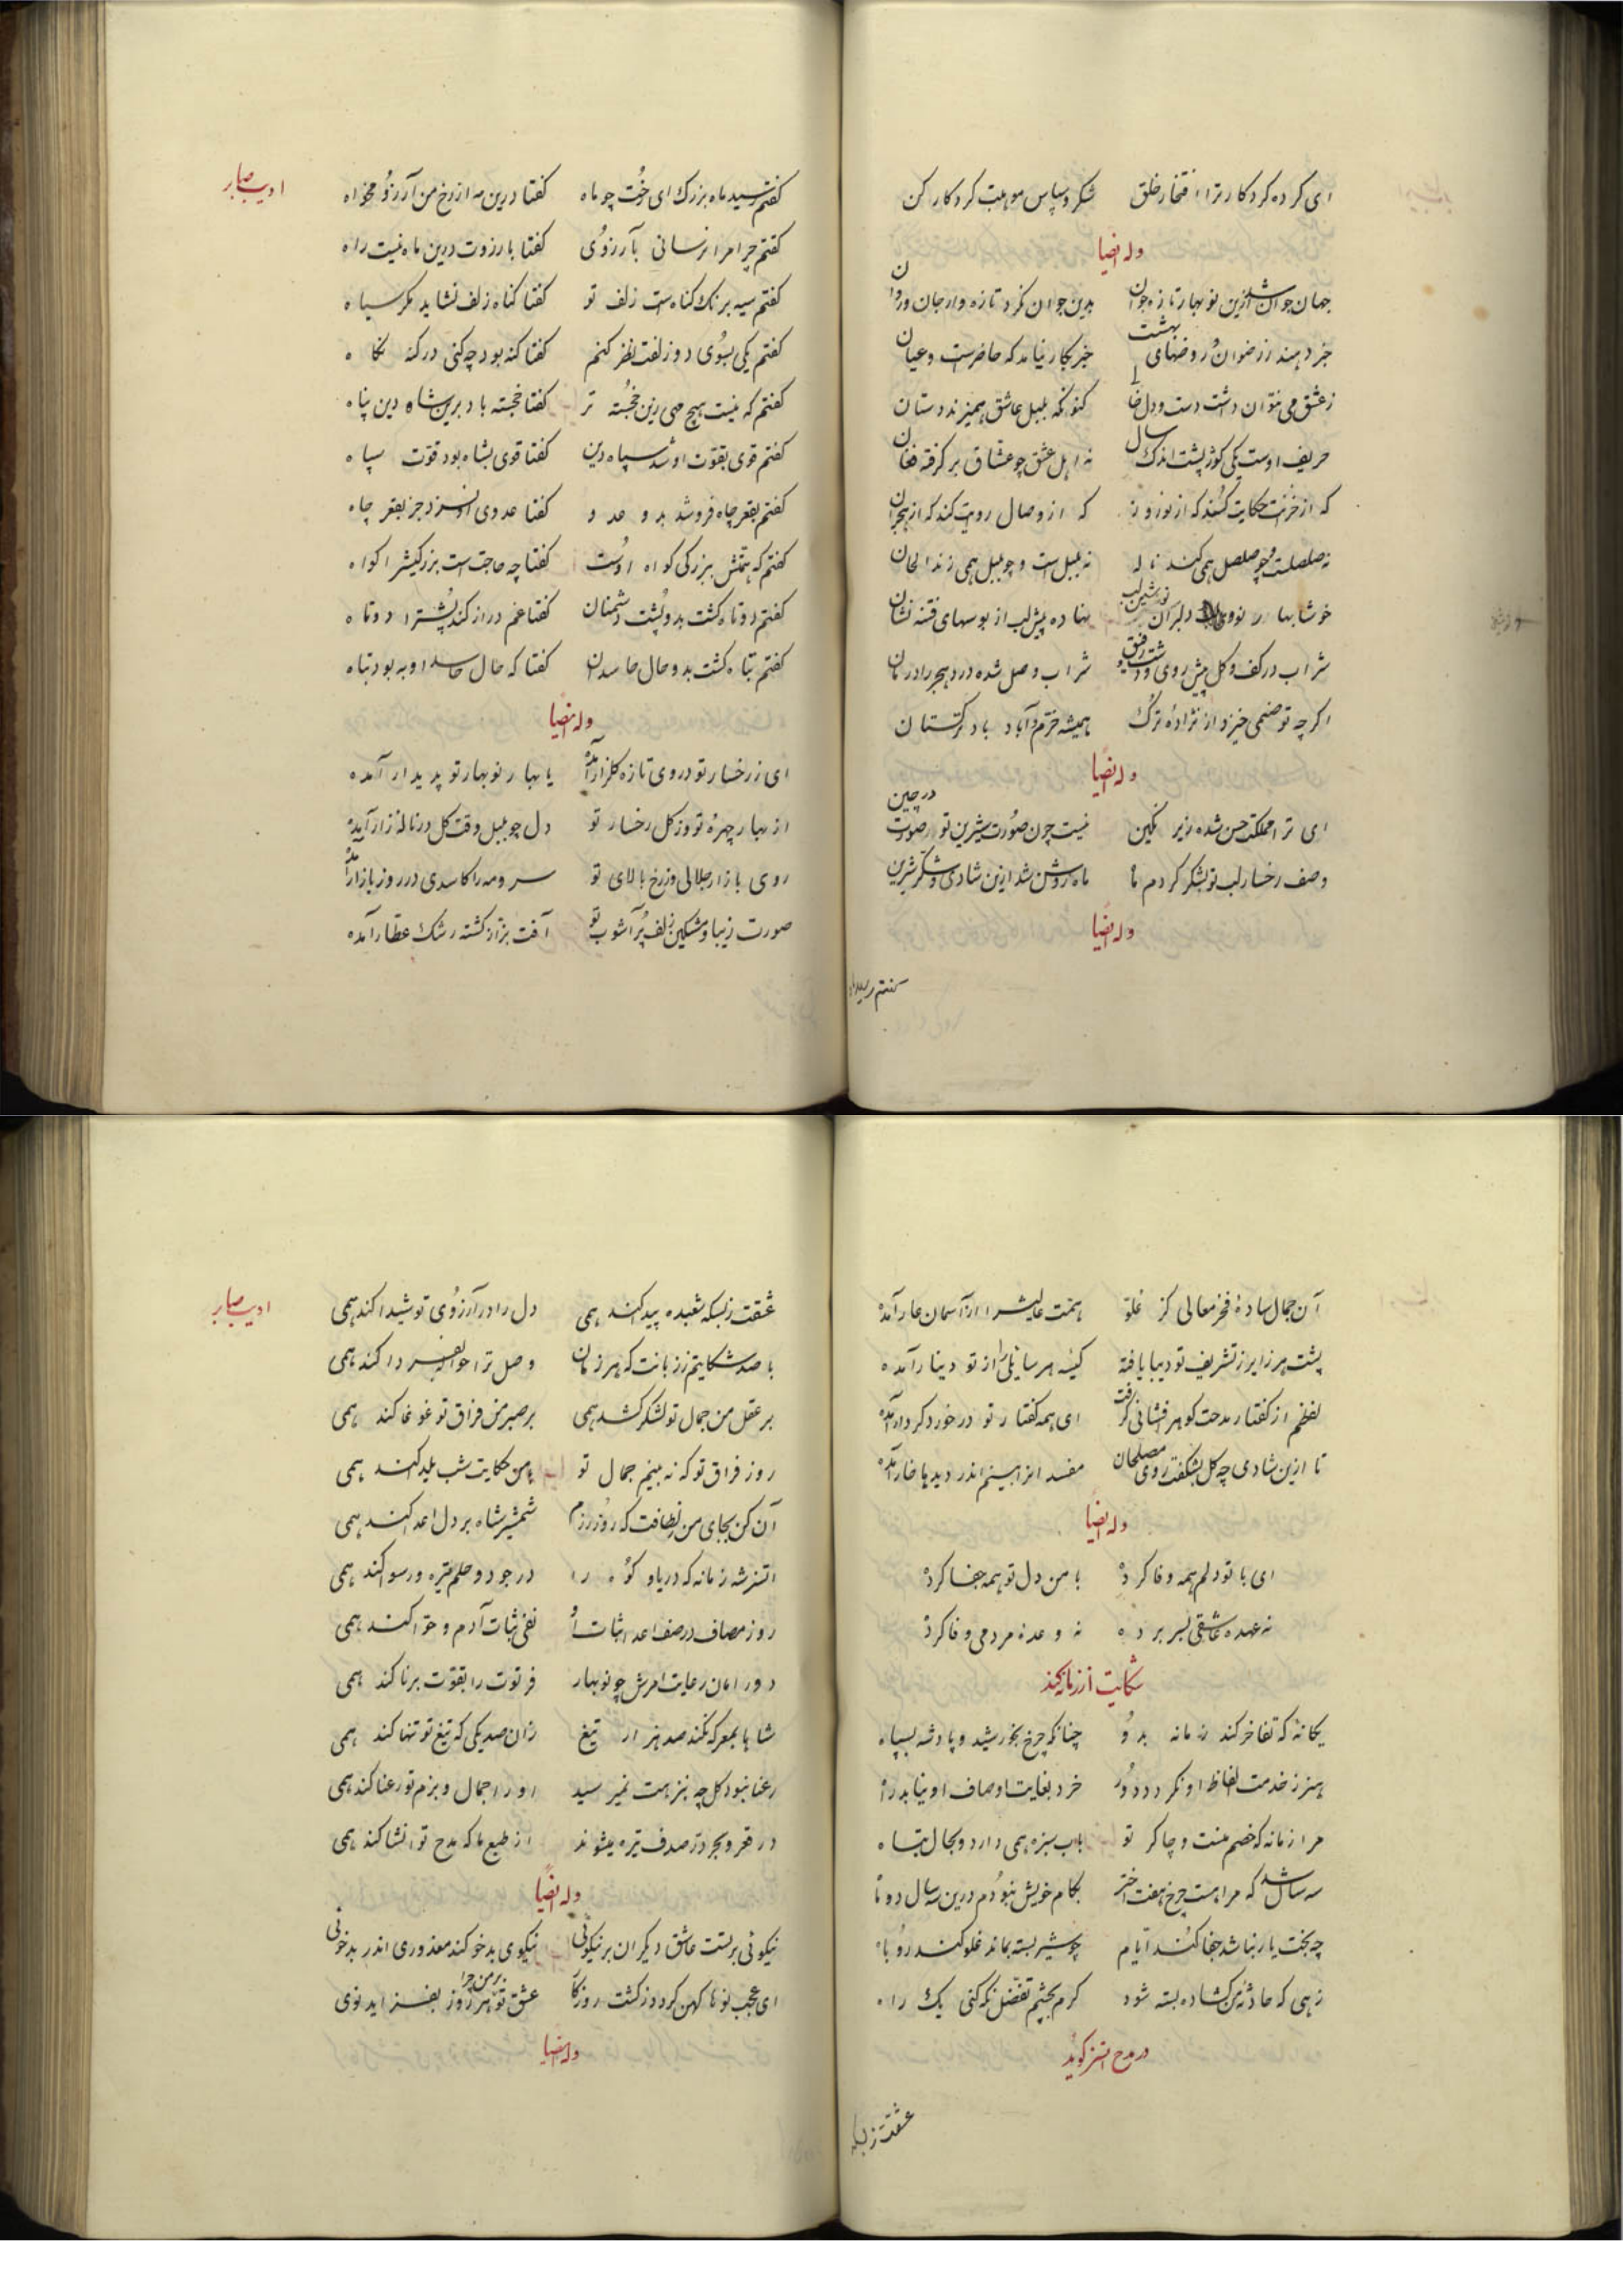 ای کرده کردکار ترا افتخار خلق شکر و سپاس موهبت کردکار کن
وله ایضا
جهان جوان شد ازین نوبهار تازه جوان بدین جوان نکرد تازه وار جان و روان
خبر دهند ز رضوان و روضهای بهشت خبر بکار نیاید که حاضرست و عیان
ز عشق می نتوان داشت دست و دل کنونکه بلبل عاشق همیزند دستان
حریف اوست یکی کوژپشت اندک سال نه اهل عشق چو عشاق برکرفته فغان
که از خزنت حکایت کند که از نوروز که از وصال روایت کند که از هجران
نه صلصلست و چو صلصل همی کند ناله نه بلبل است و چو بلبل همی زند الحان
خوشا بهار نو و دلبران نوشین لب نهاده پیش لب از بوسهای فتنه نشان
شراب در کف و کل پیش روی و دشت رفیق شراب وصل شده درد هجر را درمان
اکرچه تو صنمی خیزد از نژاده ترک همیشه خرم و آباد باد ترکستان
وله ایضا
ای ترا مملکت حسن شده زیر نکین نیست چون صورت شیرین تو صورت در چین
وصف رخسار لب تو بشکر کردم ماه روشن شد ازین شادی و شکر شیرین
وله ایضا
کفتم رسید ماه
ادیب صابر
کفتم رسید ماه بزرک ای رخت چو ماه کفتا درین مه از رخ من آرزو مخواه
کفتم چرا مرا نرسانی بآرزوی کفتا بارزوت درین ماه نیست راه
کفتم سیه برنک کناهست زلف تو کفتا کناه زلف نشاید مکر سیاه
کفتم یکی بسوی دو زلفت نظر کنم کفتا کنه بود چه کنی در کنه نکاه
کفتم که نیست هیچ مهی زین خجسته تر کفتا خجسته باد برین شاه دین پناه
کفتم قوی بقوت او شد سپاه دین کفتا قوی بشاه بود قوت سپاه
کفتم بقعر چاه فرو شد بدو عدو کفتا عدوی او نسزد جز بقعر چاه
کفتم که همتش ببزرکی کواه اوست کفتا چه حاجت است بزرکیش را کواه
کفتم دوتاه کشت بدو پشت دشمنان کفتا غم دراز کند پشت را دوتاه
کفتم تباه کشت بدو حال حاسدان کفتا که حال حاسد او به بود تباه
وله ایضا
ای ز رخسار تو در روی تازه کلزار آمده یا بهار نوبهار تو پدیدار آمده
از بهار چهره تو وز کل رخسار تو دل چو بلبل وقت کل در ناله زار آمده
روی بازار جلالی وز رخ بالای تو سرو و مه را کاسدی در روز بازار آمده
صورت زیبا و مشکین زلف پر آشوب تو آفت بزاز کشته رشک عطار آمده
آن جمال ساده فخر معالی کز غلو همت عالیش را از آسمان عار آمده
پشت هر زایر ز تشریف تو دیبا یافته کیسه هر سایلی را از تو دینار آمده
لفظم از کفتار مدحت کوهرفشانی کرفت ای همه کفتار تو در خورد کردار آمده
تا ازین شادی چه کل بشکفت روی مصلحان مفسدانرا بینم اندر دیدها خار آمده
وله ایضا
ای با تو دلم همه وفا کرده با من دل تو همه جفا کرده
نه عهده عاشقی بسر برده نه وعده مردمی وفا کرده
شکایت از زمانه کند
یکانه که تفاخر کند زمانه بدو چنانکه چرخ بخورشید و پادشه بسپاه
هنر ز خدمت الفاظ او نکردد دور خرد بغایت اوصاف او نیابد راه
مرا زمانه که خصم منست و چاکر تو باب سبزه همی دارد و بحال تباه
سه سال شد که مرا هست چرخ هفت اختر بکام خویش نبودم درین سه سال دوتا
چه بخت یار نباشد جفا کند ایام چو شیر بسته بماند غلو کند روباه
زهی که حادثه من کشاده بسته شود کرم بچشم تفضل نکه کنی یک راه
در مدح اتسز کوید
عشقت ز بسکه
ادیب صابر
عشقت ز بسکه شعبده پیدا کند همی دل را در آرزوی تو شیدا کند همی
با صد شکایتم ز زبانت که هر زمان وصل ترا حواله بفردا کند همی
بر عقل من جمال تو لشکر کشد همی بر صبر من فراق تو غوغا کند همی
روز فراق تو که نه بینم جمال تو با من حکایت شب یلدا کند همی
آن کن بجای من ز لطافت که روز رزم شمشیر شاه بر دل اعدا کند همی
اتسز شه زمانه که دریا و کوه را در جود و حلم تیره و رسوا کند همی
روز مصاف در صف اعدا ثبات او نفی ثبات آدم و حوا کند همی
دور امان رعایت امرش چو نوبهار فرتوت را بقوت برنا کند همی
شاها بمعرکه نکند صد هزار تیغ زان صد یکی که تیغ تو تنها کند همی
رعنا نبود کل چه بنزهت نمیرسید او را جمال و بزم تو رعنا کند همی
در قعر بحر در صدف تیره میشوند از طبع ما که مدح تو انشا کند همی
وله ایضا
نیکوئی بر تست عاشق دیکران بر نیکوئی نیکوی بدخو کند معذوری اندر بدخوئی
ای عجب نوها کهن کردد ز کشت روزکار عشق تو بر من چرا هر روز بفزاید نوی
وله ایضا